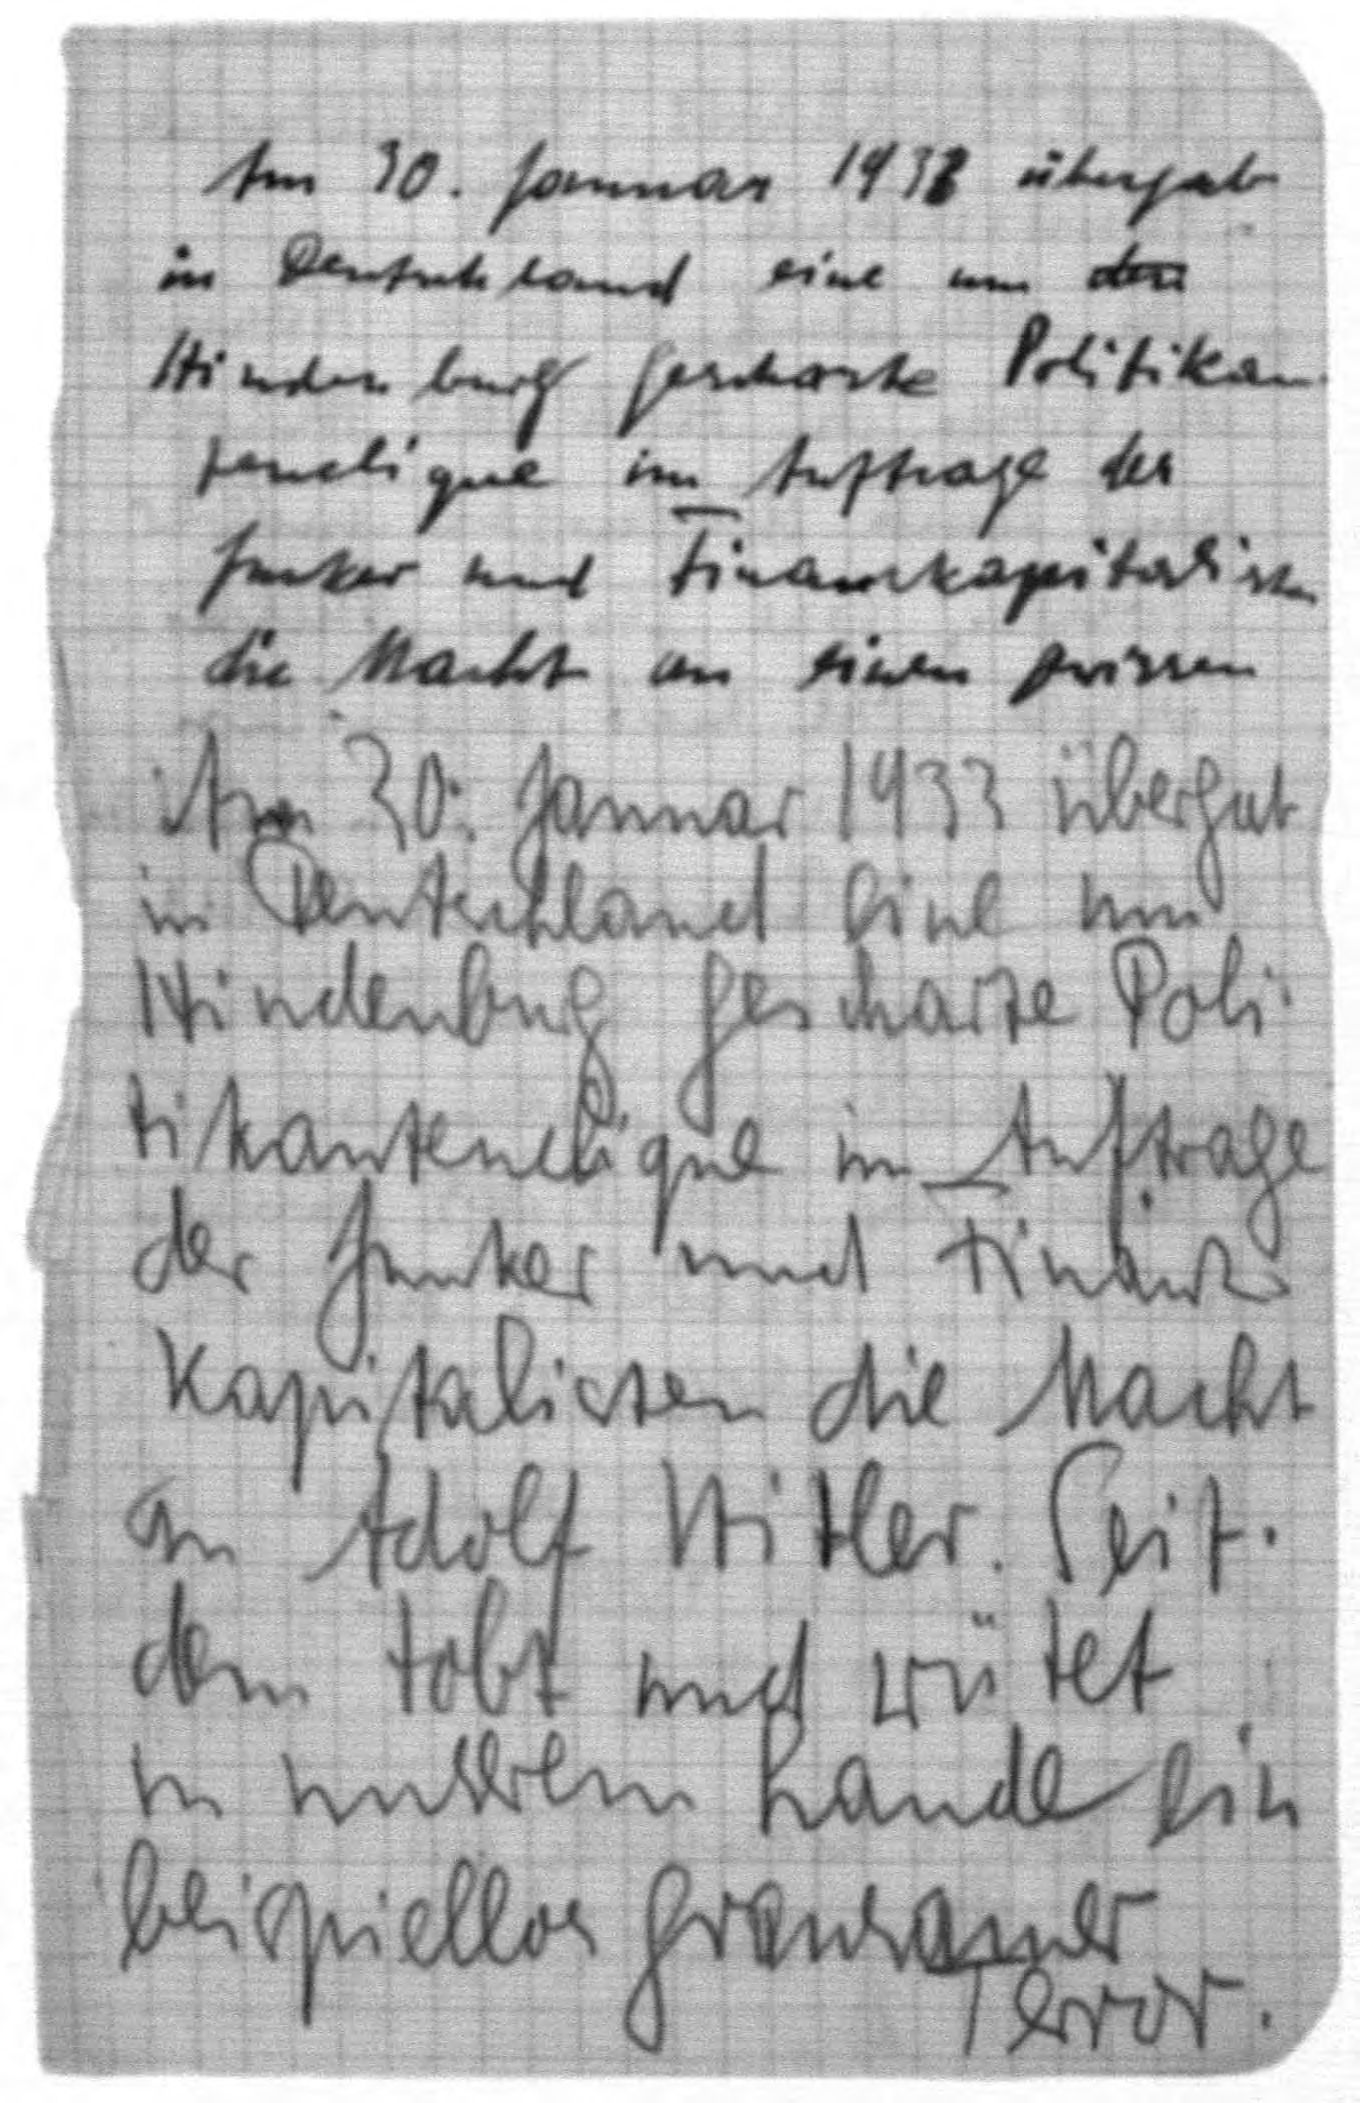 Am 30. Januar 1933 übergab
in Deutschland eine um den
Hindenburg gescharte Politikan
tenclique im Auftrage der
Junker und Finanzkapitalisten
die Macht an einen gewissen
Am 30. Januar 1933 übergab
in Deutschland eine um
Hindenburg gescharte Poli
tikantenclique im Auftrage
der Junker und Finanz
Kapitalisten die Macht
an Adolf Hitler. Seit.
dem tobt und wütet
in unserem Lande ein
beispiellos grausamer
Terror.